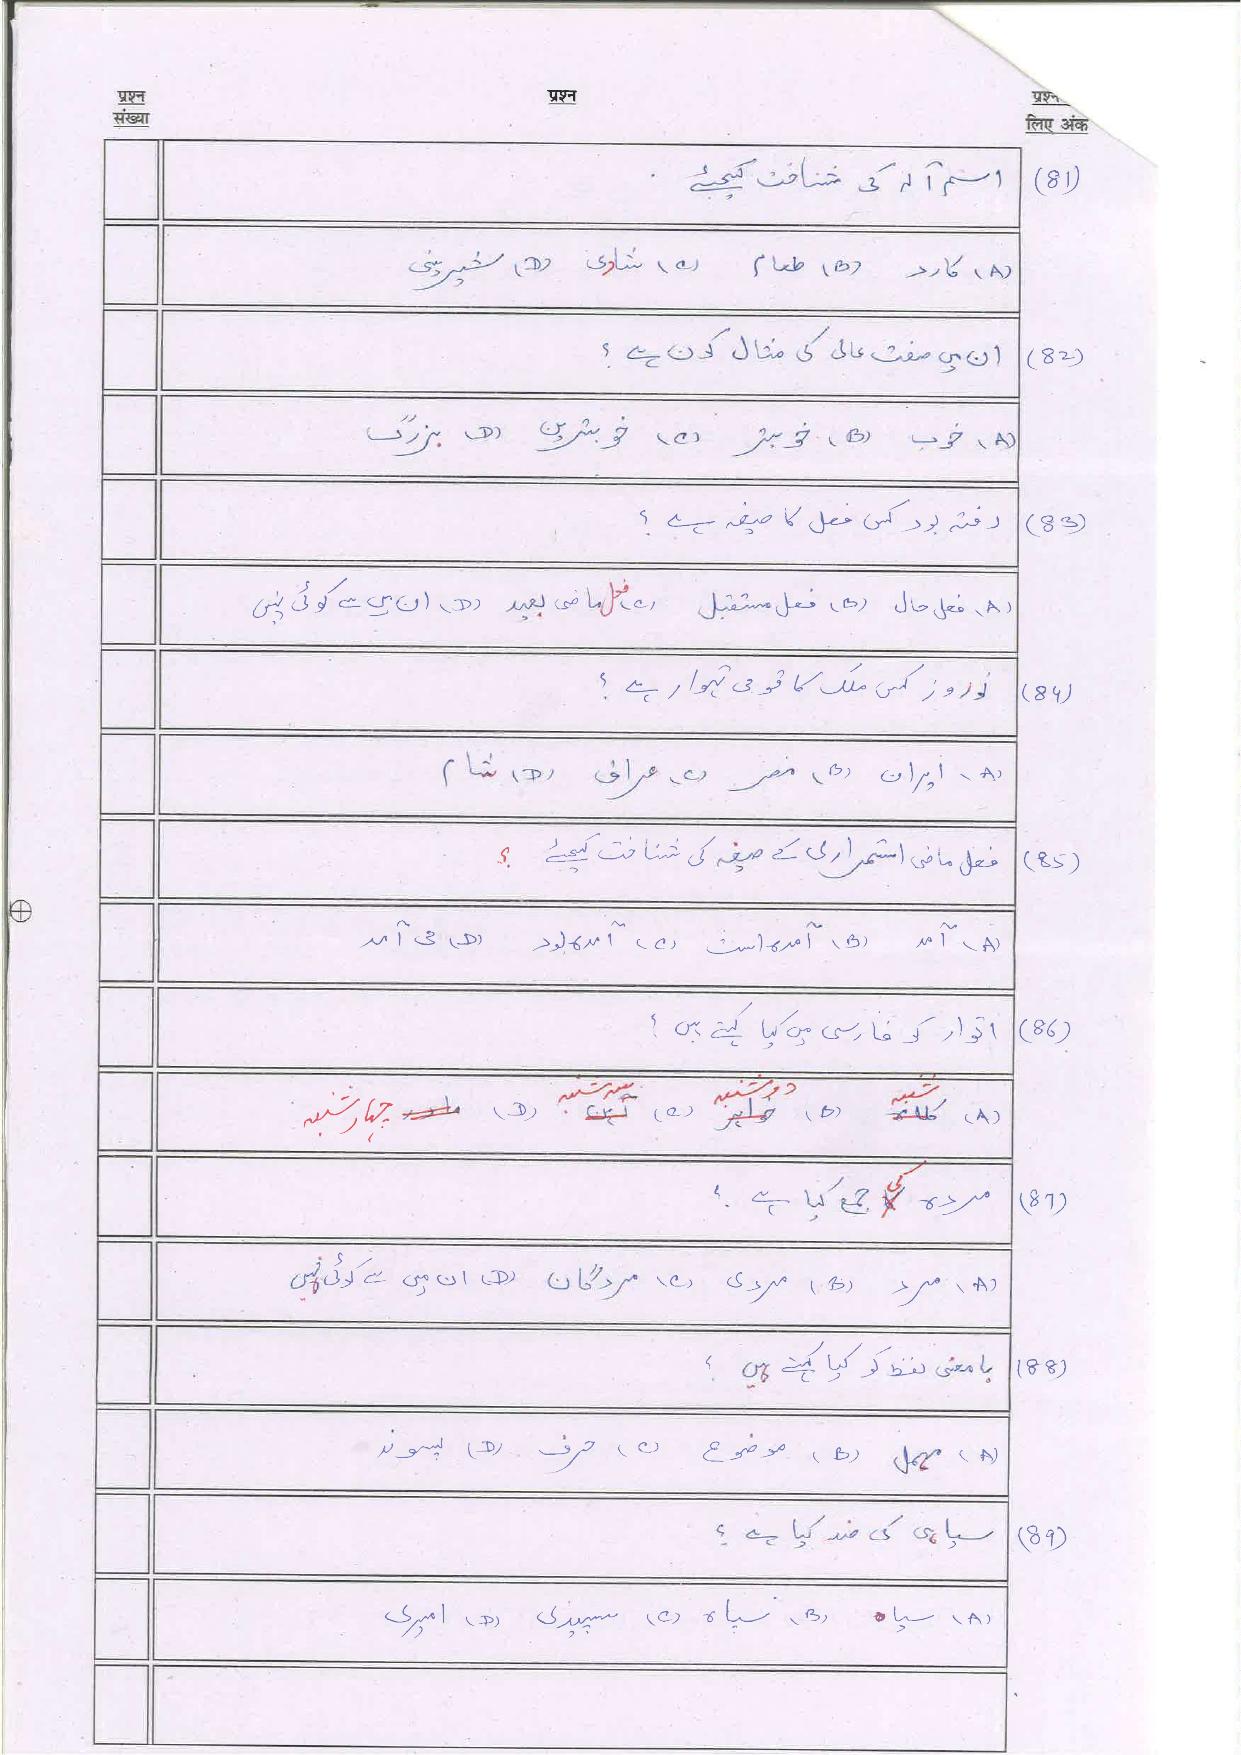 प्रश्न संख्या
प्रश्न
प्रश्न लिए अंक
(81) اسم آلہ کی شناخت کیجیئے
(A) کارد (B) طعام (C) شادی (D) شیرینی
(82) ان میں صفت عالی کی مثال کون ہے ؟
(A) خوب (B) خوبتر (C) خوبترین (D) بزرگ
(83) رفتہ بود کس فعل کا صیغہ ہے ؟
(A) فعل حال (B) فعل مستقبل (C) فعل ماضی بعید (D) ان میں سے کوئی نہیں
(84) نوروز کس ملک کا قومی تہوار ہے ؟
(A) ایران (B) مصر (C) عراق (D) شام
(85) فعل ماضی استمراری کے صیغہ کی شناخت کیجیئے ؟
(A) آمد (B) آمدہ است (C) آمدہ بود (D) می آمد
(86) اتوار کو فارسی میں کیا کہتے ہیں ؟
(A) شنبہ (B) دوشنبہ (C) سہ شنبہ (D) چہار شنبہ
(87) مردہ کی جمع کیا ہے ؟
(A) مرد (B) مردی (C) مردگان (D) ان میں سے کوئی نہیں
(88) بامعنی لفظ کو کیا کہتے ہیں ؟
(A) مہمل (B) موضوع (C) حرف (D) پسوند
(89) سیاہی کی ضد کیا ہے ؟
(A) سیاہ (B) سپاہ (C) سپیدی (D) امیری